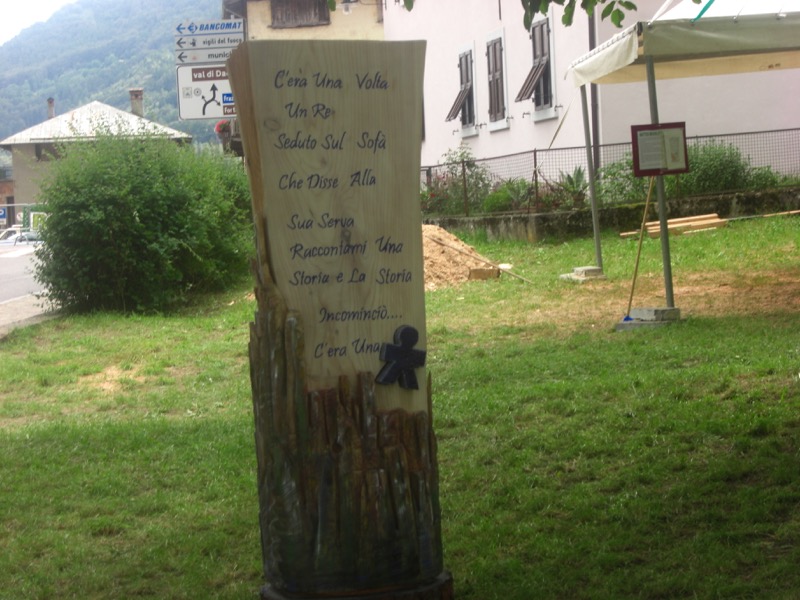 BANCOMAT
vigili del fuoco
municipio
val di Da
C'era Una Volta
Un Re
Seduto Sul Sofà
Che Disse Alla
Sua Serva
Raccontami Una
Storia e La Storia
Incominciò....
C'era Una